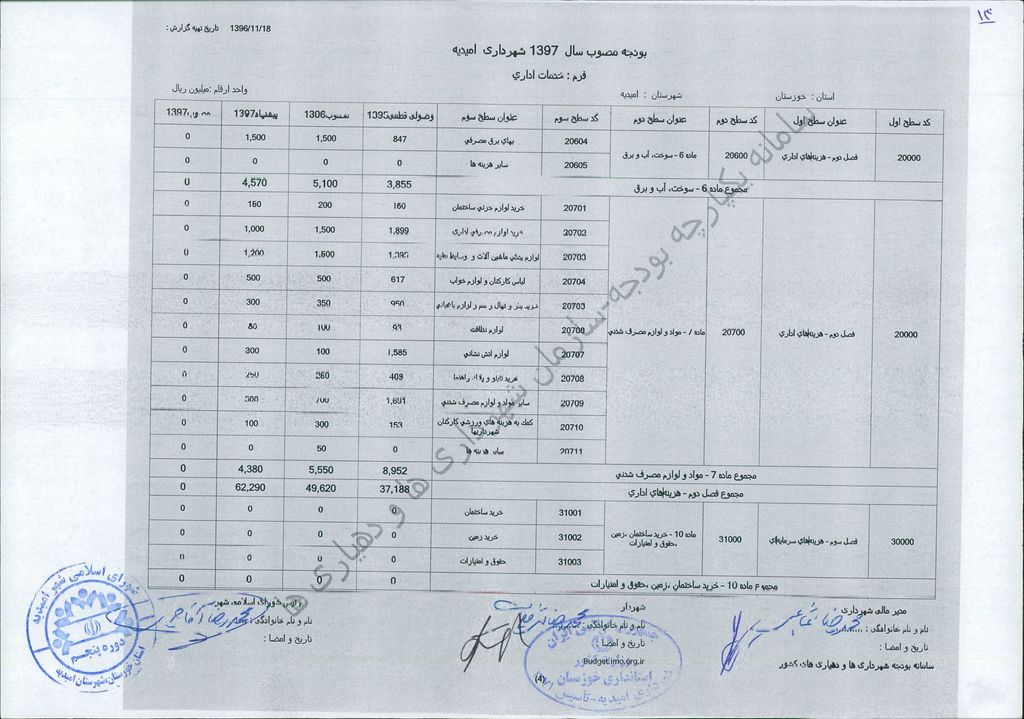 ۱۴
تاریخ تهیه گزارش : 1396/11/18
بودجه مصوب سال 1397 شهرداری امیدیه
فرم : خدمات اداري
استان : خوزستان شهرستان : امیدیه واحد ارقام :میلیون ریال
کد سطح اول عنوان سطح اول کد سطح دوم عنوان سطح دوم کد سطح سوم عنوان سطح سوم وصولی قطعی1395 پیشنهاد1397
20000 فصل دوم - هزینه‌های اداري 20600 ماده 6 - سوخت، آب و برق 20604 بهاي برق مصرفي 847 1,500 1,500 0
20605 سایر هزینه ها 0 0 0 0
مجموع ماده 6 - سوخت، آب و برق 3,855 5,100 4,570 0
20000 فصل دوم - هزینه‌های اداري 20700 ماده 7 - مواد و لوازم مصرف شدني
20701 خرید لوازم جزئي ساختمان 160 200 160 0
20702 خرید لوازم مصرفي اداري 1,899 1,500 1,000 0
20703 1,600 1,200 0
20704 لباس کارکنان و لوازم خواب 617 500 500 0
350 300 0
لوازم نظافت 93 100 80 0
20707 لوازم آتش نشاني 1,585 100 300 0
20708 409 260 250 0
20709 سایر مواد و لوازم مصرف شدني 1,691 700 500 0
20710 کمك به هزینه هاي ورزشي کارکنان شهرداریها 153 300 100 0
20711 سایر هزینه ها 0 50 0 0
مجموع ماده 7 - مواد و لوازم مصرف شدني 8,952 5,550 4,380 0
مجموع فصل دوم - هزینه‌های اداري 37,188 49,620 62,290 0
30000 فصل سوم - هزینه‌های سرمایه‌ای 31000 ماده 10 - خرید ساختمان ،زمین ،حقوق و امتیازات 31001 خرید ساختمان 0 0 0 0
31002 خرید زمین 0 0 0 0
31003 حقوق و امتیازات 0 0 0 0
مجموع ماده 10 - خرید ساختمان ،زمین ،حقوق و امتیارات 0 0 0 0
سامانه یکپارچه بودجه-سازمان شهرداری ها و دهیاری ها
مدیر مالی شهرداری شهردار رئیس شورای اسلامی شهر
نام و نام خانوادگی : نام و نام خانوادگی : نام و نام خانوادگی :
تاریخ و امضا : تاریخ و امضا : تاریخ و امضا :
سامانه بودجه شهرداری ها و دهیاری های کشور BudgetLimo.org.ir
(4)
شورای اسلامی شهر امیدیه
دوره پنجم
استان خوزستان،شهرستان امیدیه
استانداری خوزستان